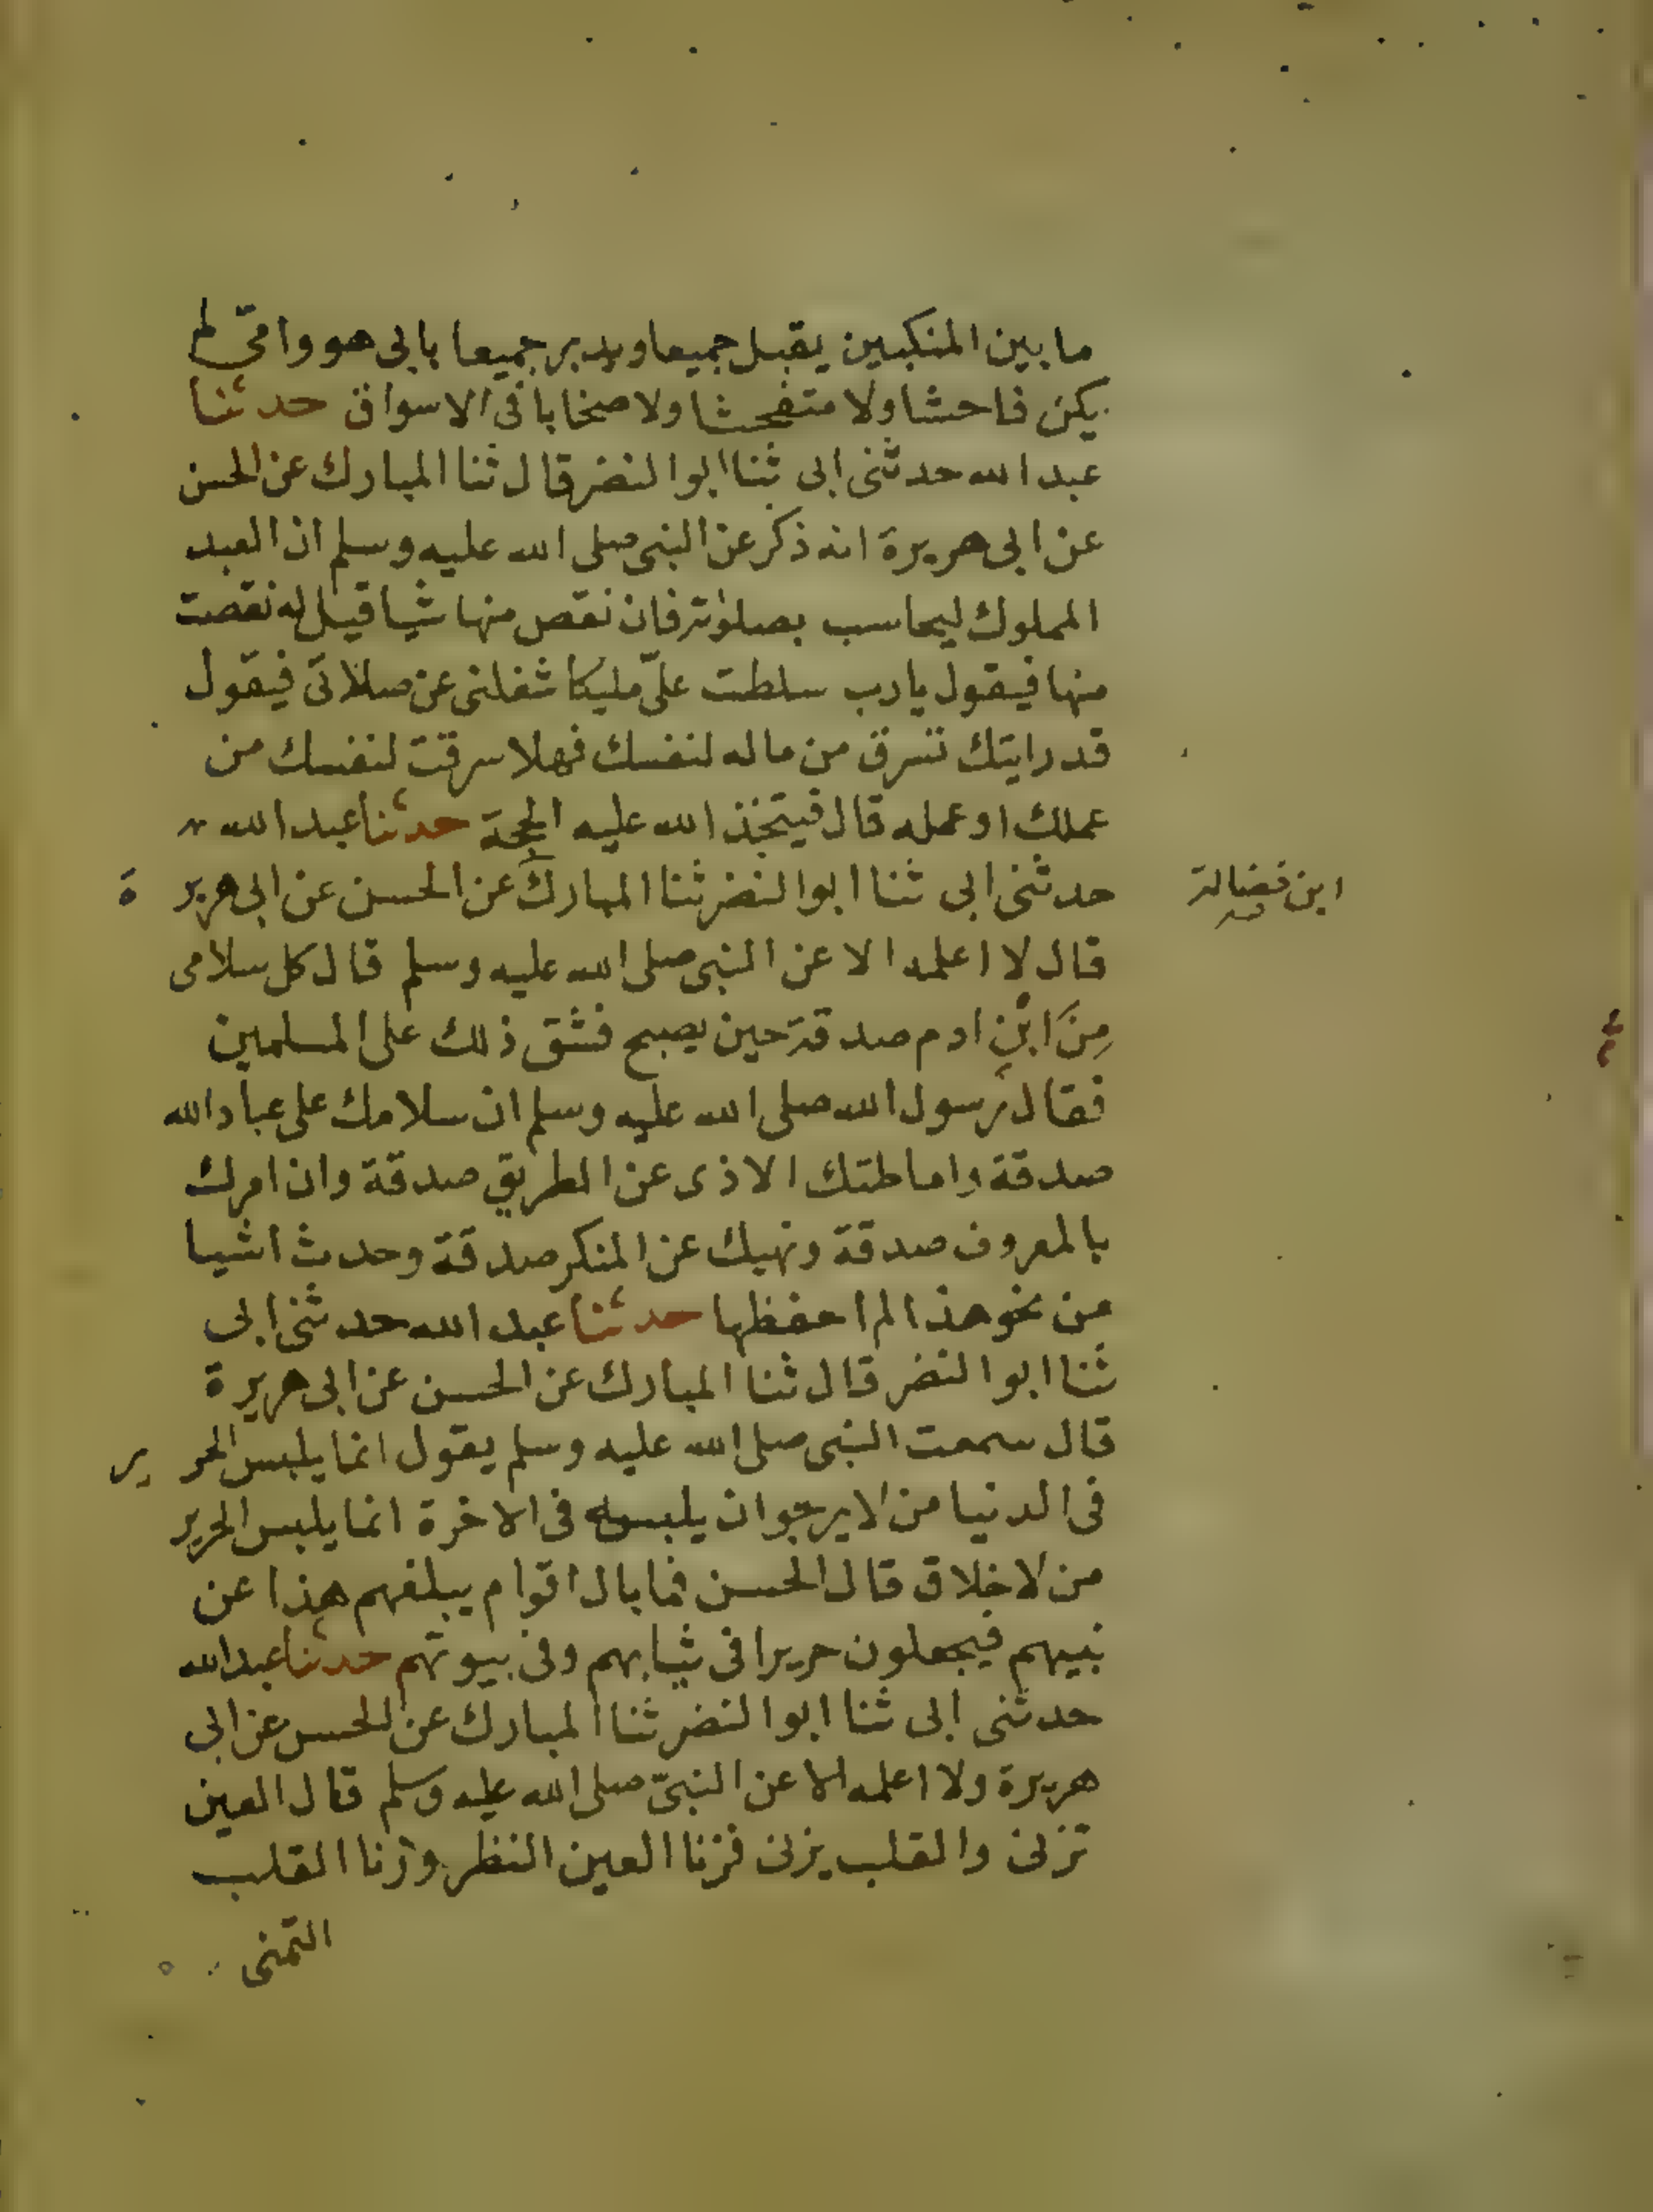 ما بين المنكبين يقبل جميعا ويدبر جميعا بابى هو وامى لم
يكن فاحشا ولا متفحشا ولا صخابا فى الاسواق حدثنا
عبد الله حدثنى ابى ثنا ابو النضر قال ثنا المبارك عن الحسن
عن ابى هريرة انه ذكر عن النبى صلى الله عليه وسلم ان العبد
المملوك ليحاسب بصلوته فان نقص منها شيا قيل له نقصت
منها فيقول يارب سلطت علىّ مليكا شغلنى عن صلاتى فيقول
قد رايتك تسرق من ماله لنفسك فهلا سرقت لنفسك من
عملك او عمله قال فيتخذ الله عليه الحجة حدثنا عبد الله
حدثنى ابى ثنا ابو النضر ثنا المبارك عن الحسن عن ابى هريرة
ابن فضالة
قال لا اعلمه الا عن النبى صلى الله عليه وسلم قال كل سلامى
مِنَ ابْنِ ادم صدقة حين يصبح فشق ذلك على المسلمين
فقال رسول الله صلى الله عليه وسلم ان سلامك على عباد الله
صدقة واماطتك الاذى عن الطريق صدقة وان امرك
بالمعروف صدقة ونهيك عن المنكر صدقة وحدث اشيا
من نحو هذا لم احفظها حدثنا عبد الله حدثنى ابى
ثنا ابو النضر قال ثنا المبارك عن الحسن عن ابى هريرة
قال سمعت النبى صلى الله عليه وسلم يقول انما يلبس الحرير
فى الدنيا من لا يرجو ان يلبسه فى الاخرة انما يلبس الحرير
من لا خلاق قال الحسن فما بال اقوام يبلغهم هذا عن
نبيهم فيجعلون حريرا فى ثيابهم وفى بيوتهم حدثنا عبد الله
حدثنى ابى ثنا ابو النضر ثنا المبارك عن الحسن عن ابى
هريرة ولا اعلمه الا عن النبىّ صلى الله عليه وسلم قال العين
تزنى والقلب يزنى فزنا العين النظر وزنا القلب
التمنى